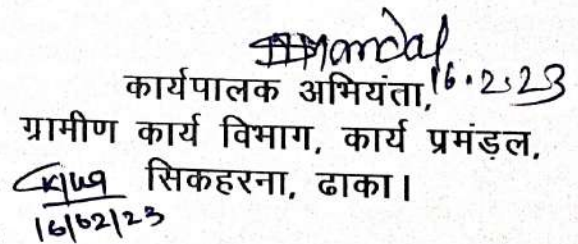 Mandal
कार्यपालक अभियंता, 16.2.23
ग्रामीण कार्य विभाग, कार्य प्रमंड़ल,
सिकहरना, ढाका।
16/02/23